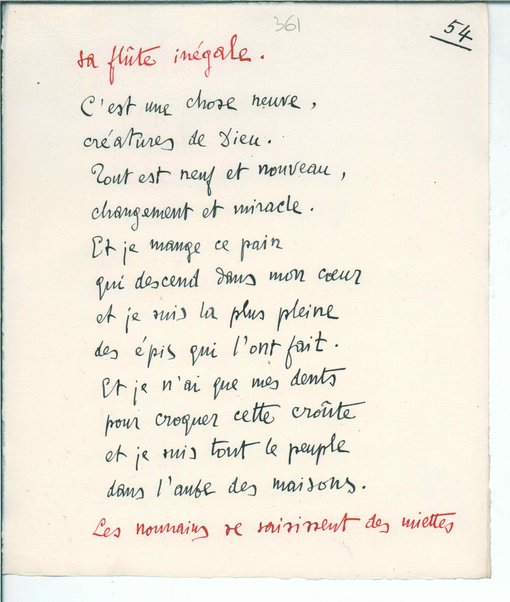 361
54
sa flûte inégale.
C'est une chose neuve,
créatures de Dieu.
Tout est neuf et nouveau,
changement et miracle.
Et je mange ce pain
qui descend dans mon cœur
et je suis la plus pleine
des épis qui l'ont fait.
Et je n'ai que mes dents
pour croquer cette croûte
et je suis tout le peuple
dans l'aube des maisons.
Les nonnains se saisissent des miettes